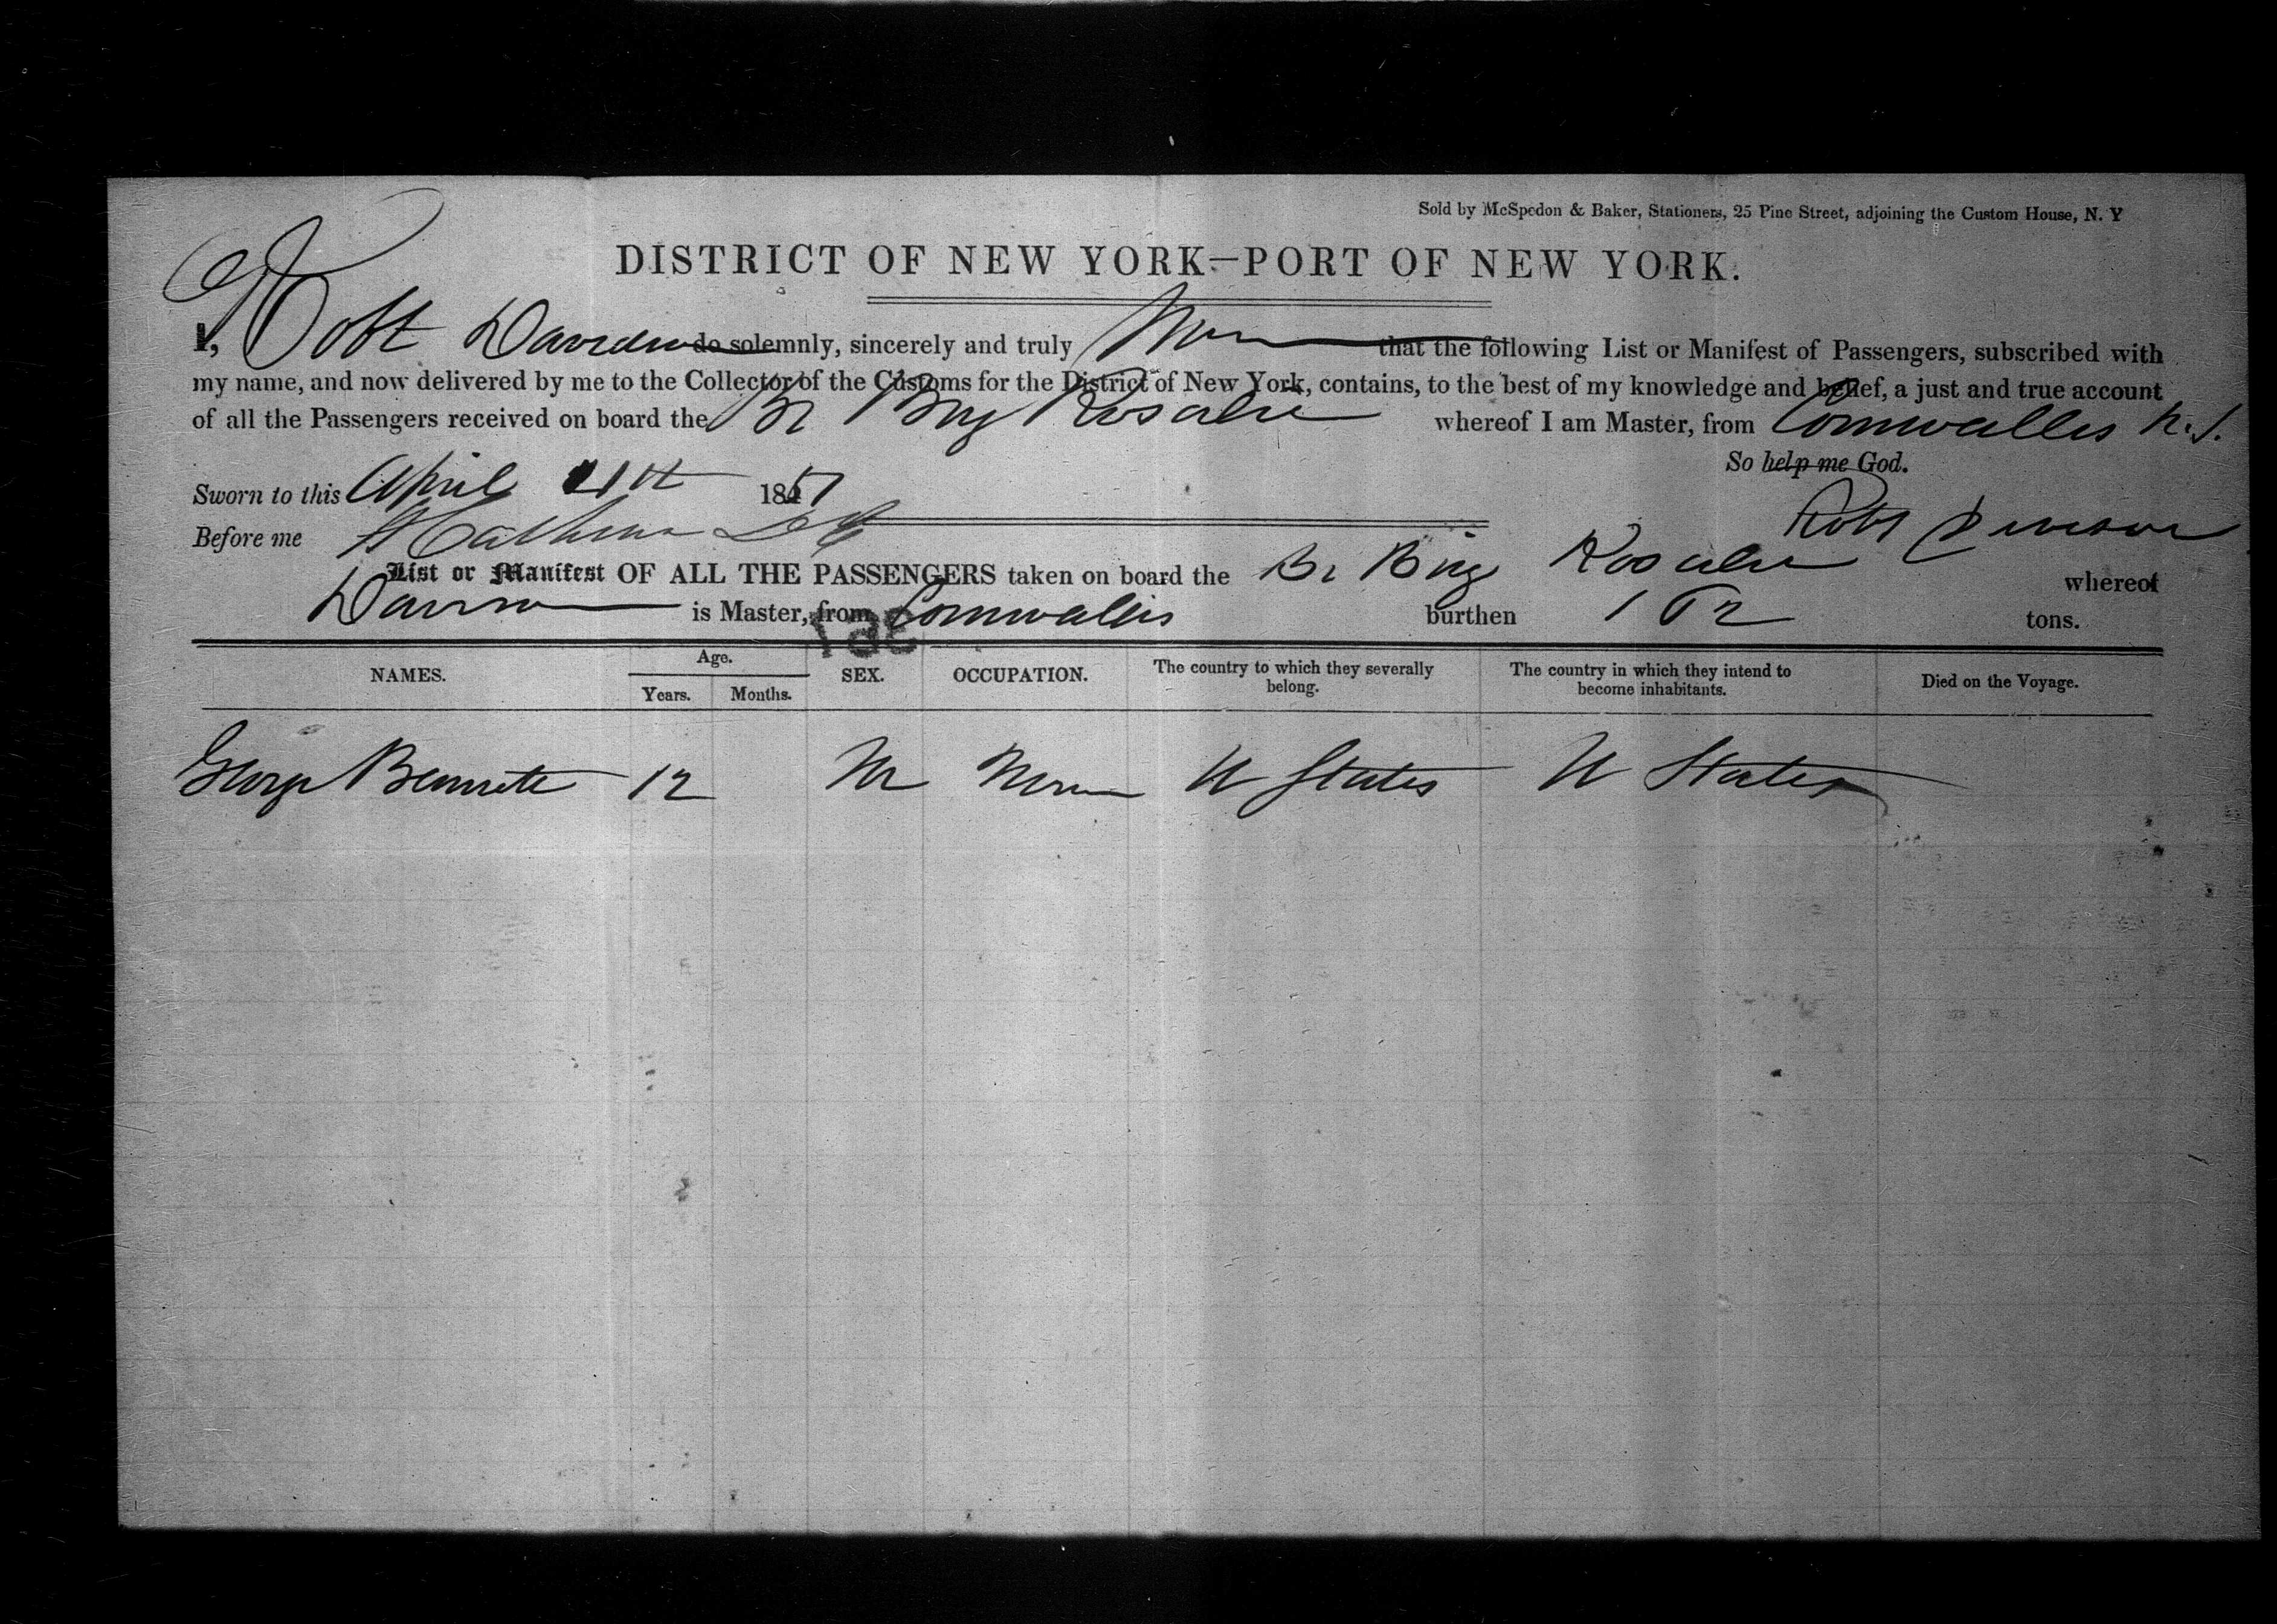 Sold by McSpedon & Baker, Stationers, 25 Pine Street, adjoining the Custom House, N. Y
DISTRICT OF NEW YORK—PORT OF NEW YORK.
I, Robt do solemnly, sincerely and truly that the following List or Manifest of Passengers, subscribed with
my name, and now delivered by me to the Collector of the Customs for the District of New York, contains, to the best of my knowledge and belief, a just and true account
of all the Passengers received on board the Br Brig Rosalie whereof I am Master, from Cornwallis N.S.
So help me God.
Sworn to this April 185
Robt
Before me
List or Manifest OF ALL THE PASSENGERS taken on board the Br Brig Rosalie whereof
is Master, from Cornwallis burthen tons.
NAMES. Age. Years. Months. SEX. OCCUPATION. The country to which they severally belong. The country in which they intend to become inhabitants. Died on the Voyage.
George Bennett 12 M None U States U States